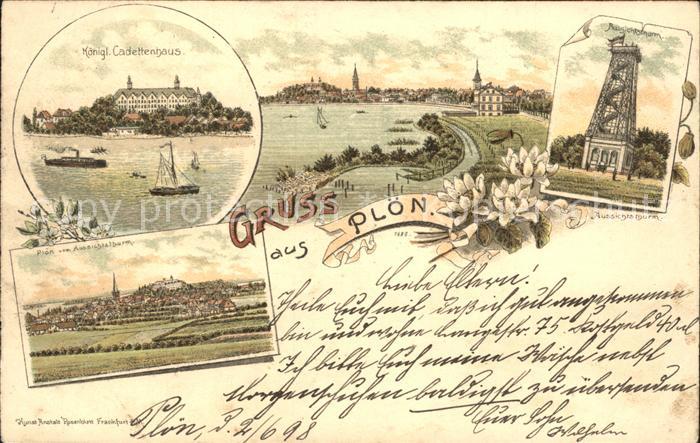 Königl. Cadettenhaus.
Aussichtsthurm.
GRUSS
aus
PLÖN.
Aussichtsthurm.
Plön vom Aussichtsthurm.
Liebe Eltern!
Theile Euch mit, daß ich gut angekommen
bin und wohne Langestr. 75. Kostgeld 40
Ich bitte Euch meine Wäsche nebst
Morgenschuhen baldigst zu übersenden
Euer Sohn
Wilhelm
Plön, d. 2/6 98
Kunst Anstalt Rosenblatt Frankfurt